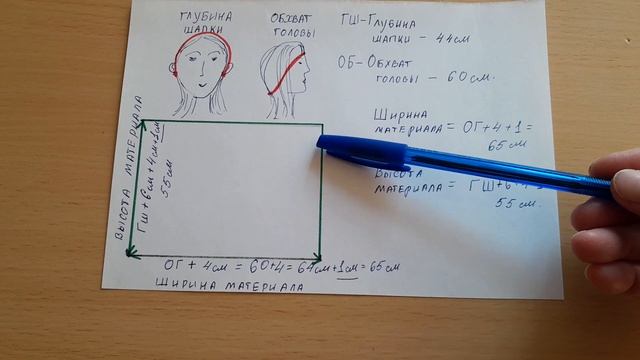 ГЛУБИНА
ШАПКИ
ОБХВАТ
ГОЛОВЫ
ГШ-ГЛУБИНА
ШАПКИ - 44см
ОБ-ОБХВАТ
ГОЛОВЫ - 60см.
ШИРИНА
МАТЕРИАЛА = ОГ+4+1=
65см
ВЫСОТА
МАТЕРИАЛА = ГШ+6
55см.
ВЫСОТА МАТЕРИАЛА
ГШ+6см+4см+1см
55см
ОГ + 4см = 60+4= 64см+1см=65см
ШИРИНА МАТЕРИАЛА